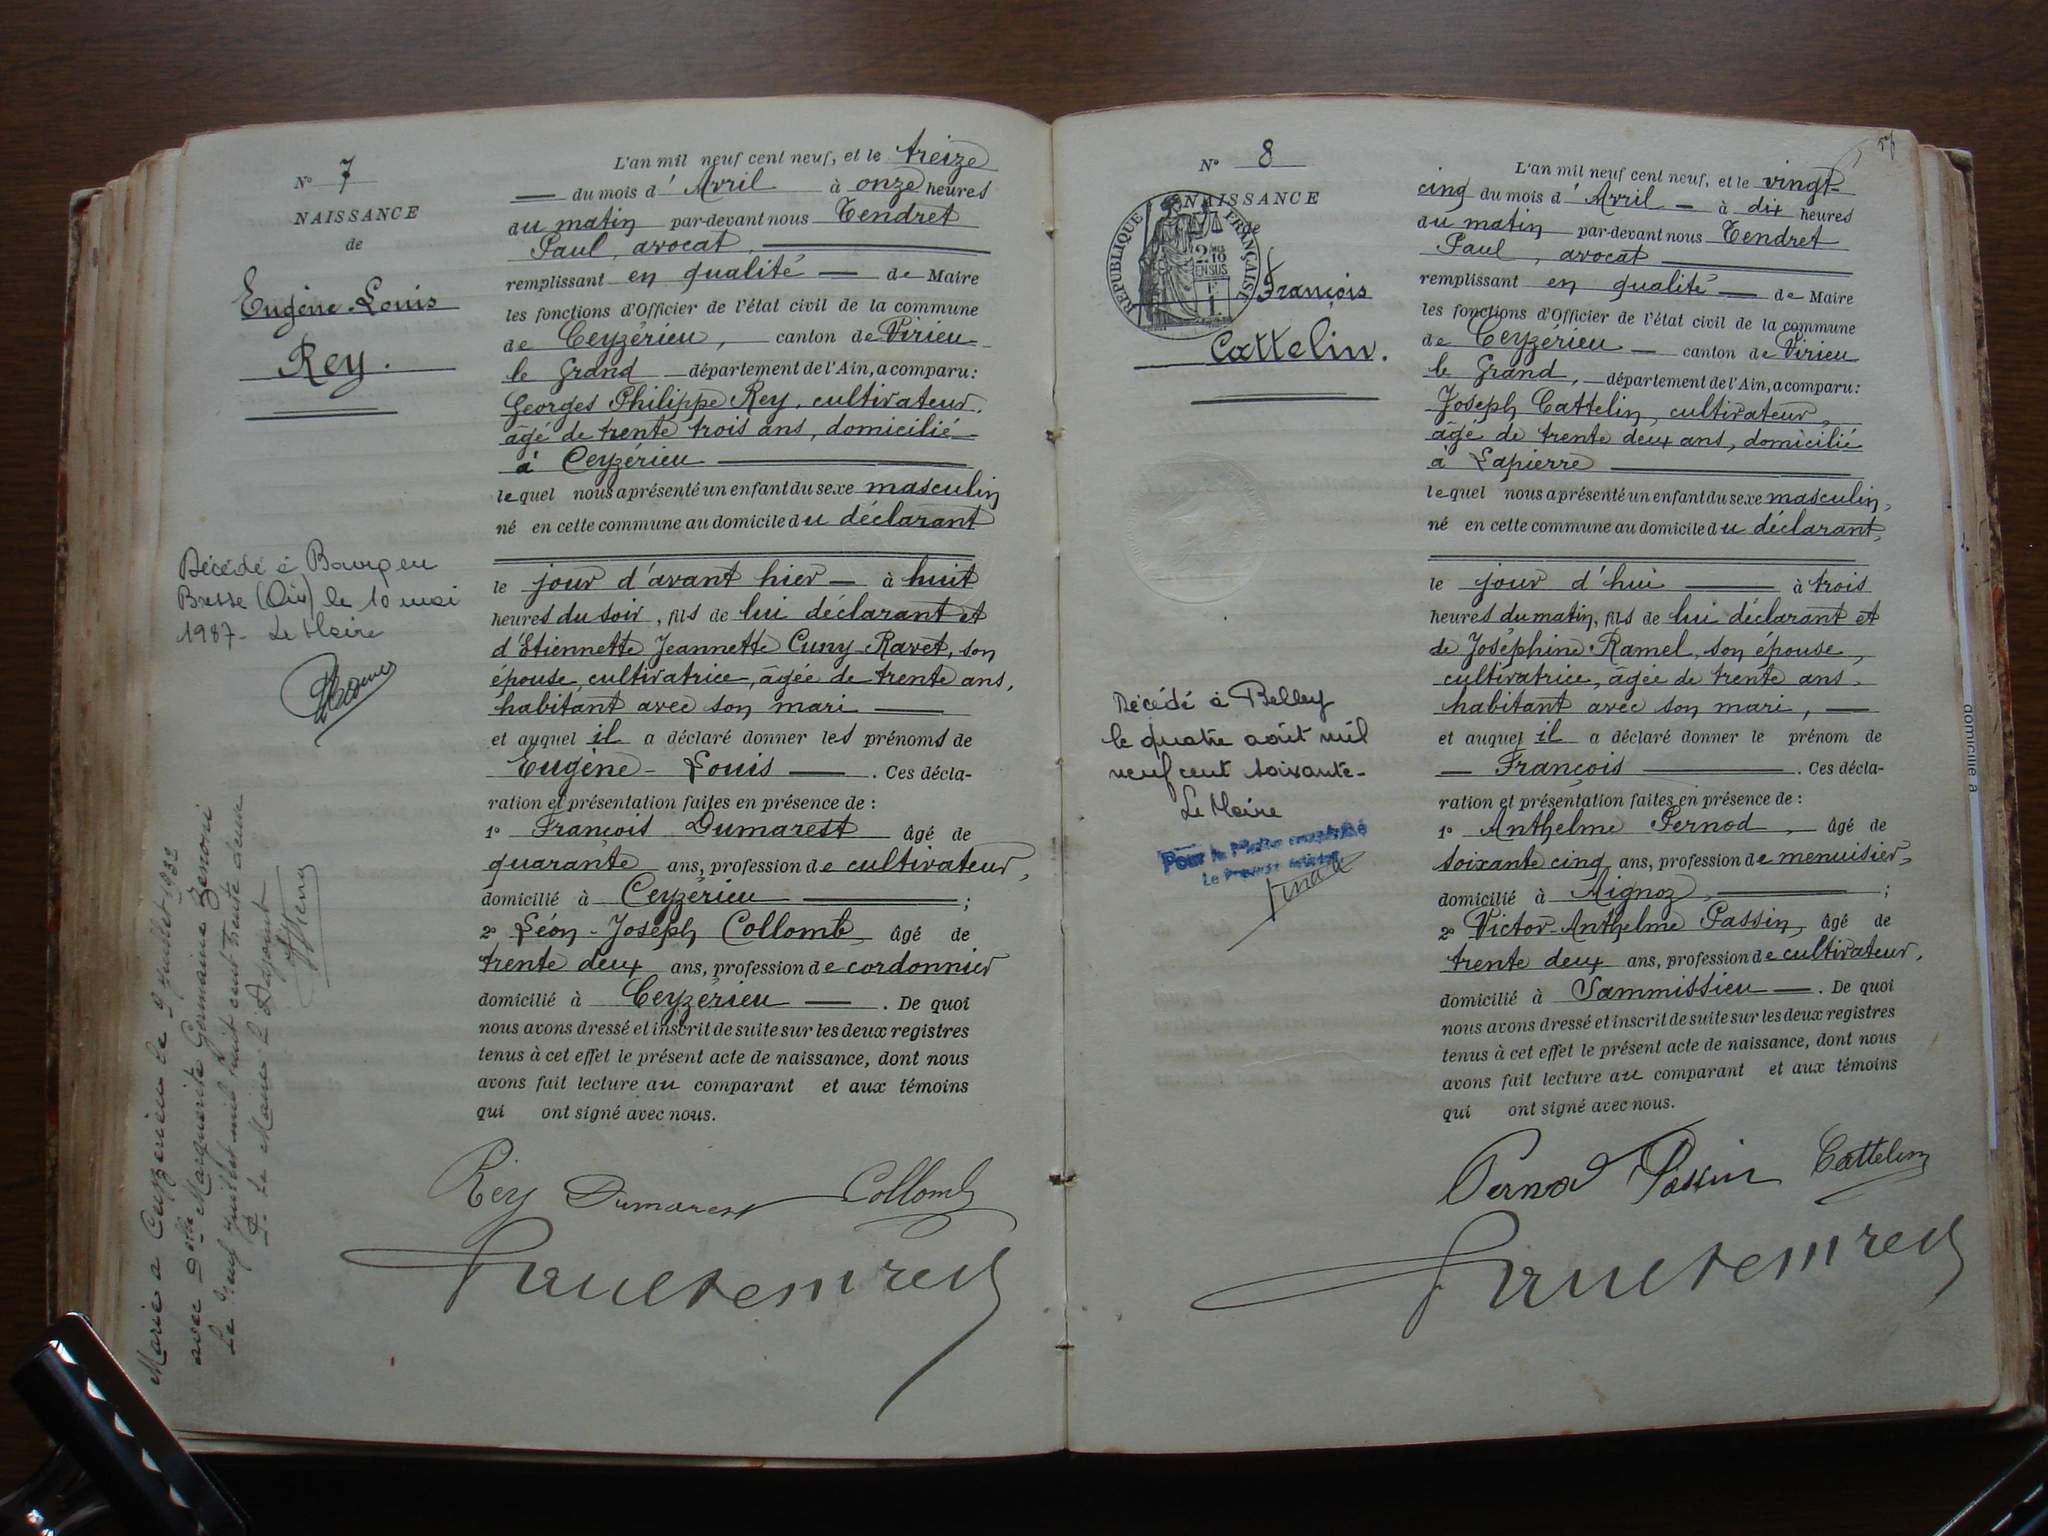 N° 7
NAISSANCE
de
Eugène-Louis
Rey.
Décédé à Bourg en
Bresse (Ain) le 10 mai
1987 - Le Maire
Marié à Ceyzérieu le 9 juillet 1932
avec Delle Marguerite Germaine
Le neuf juillet mil neuf cent trente deux
P. le Maire L'Adjoint
L'an mil neuf cent neuf, et le treize
du mois d'Avril à onze heures
du matin par-devant nous Tendret
Paul, avocat,
remplissant en qualité de Maire
les fonctions d'Officier de l'état civil de la commune
de Ceyzérieu, canton de Virieu
le Grand département de l'Ain, a comparu:
Georges Philippe Rey, cultivateur,
âgé de trente trois ans, domicilié
à Ceyzérieu
lequel nous a présenté un enfant du sexe masculin
né en cette commune au domicile du déclarant
le jour d'avant hier à huit
heures du soir, fils de lui déclarant et
d'Etiennette Jeannette Cuny-Ravet, son
épouse, cultivatrice, âgée de trente ans,
habitant avec son mari
et auquel il a déclaré donner les prénoms de
Eugène-Louis. Ces décla-
ration et présentation faites en présence de:
1° François Dumarest âgé de
quarante ans, profession de cultivateur,
domicilié à Ceyzérieu;
2° Léon-Joseph Collomb, âgé de
trente deux ans, profession de cordonnier
domicilié à Ceyzérieu. De quoi
nous avons dressé et inscrit de suite sur les deux registres
tenus à cet effet le présent acte de naissance, dont nous
avons fait lecture au comparant et aux témoins
qui ont signé avec nous.
Rey Dumarest Collomb
N° 8
NAISSANCE
de
RÉPUBLIQUE FRANÇAISE
2/10 EN SUS
François
Cattelin.
Décédé à Belley
le quatre août mil
neuf cent soixante-
Le Maire
Pour le Maire empêché
57
L'an mil neuf cent neuf, et le vingt-
cinq du mois d'Avril à dix heures
du matin par-devant nous Tendret
Paul, avocat
remplissant en qualité de Maire
les fonctions d'Officier de l'état civil de la commune
de Ceyzérieu canton de Virieu
le Grand, département de l'Ain, a comparu:
Joseph Cattelin, cultivateur,
âgé de trente deux ans, domicilié
à Lapierre
lequel nous a présenté un enfant du sexe masculin,
né en cette commune au domicile du déclarant,
le jour d'hui à trois
heures du matin, fils de lui déclarant et
de Joséphine Ramel, son épouse,
cultivatrice, âgée de trente ans,
habitant avec son mari,
et auquel il a déclaré donner le prénom de
François. Ces décla-
ration et présentation faites en présence de:
1° Anthelme Pernod, âgé de
soixante cinq ans, profession de menuisier,
domicilié à Aignoz,;
2° Victor-Anthelme Passin, âgé de
trente deux ans, profession de cultivateur,
domicilié à Sammissieu. De quoi
nous avons dressé et inscrit de suite sur les deux registres
tenus à cet effet le présent acte de naissance, dont nous
avons fait lecture au comparant et aux témoins
qui ont signé avec nous.
Pernod Passin Cattelin
domicilié à